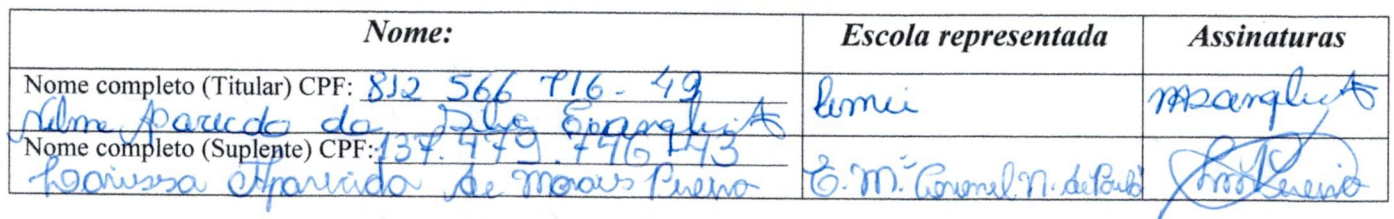 Nome: Escola representada Assinaturas
Nome completo (Titular) CPF: 812 566 716 - 49 Cemei
Aparecida da Silva Evangelista
Nome completo (Suplente) CPF: 137.479.746-43
Larissa Aparecida de Morais Pereira E. M. Coronel N. de Paula